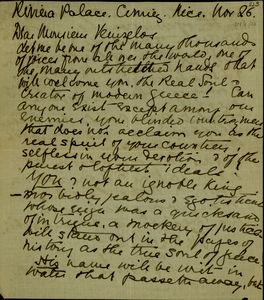 Riviera Palace. Cimiez. Nice. Nov 26.
Dear Monsieur Venizelos
let me be one of the many thousands
of voices from all over the world, one of
the many outstretched hands that
will welcome you, the Real Soul &
Creator of modern Greece! Can
anyone exist except among our
enemies, your blinded countrymen
that does not acclaim you as the
real spirit of your country!
selfless in your devotion & of the
purest & loftiest ideals!
You & not an ignoble King
morbidly jealous &
whose reign was a quicksand
of intrigue, a mockery of justice
will stand out in the pages of
history as the true soul of Greece
His name will be writ in
water that passeth away, but